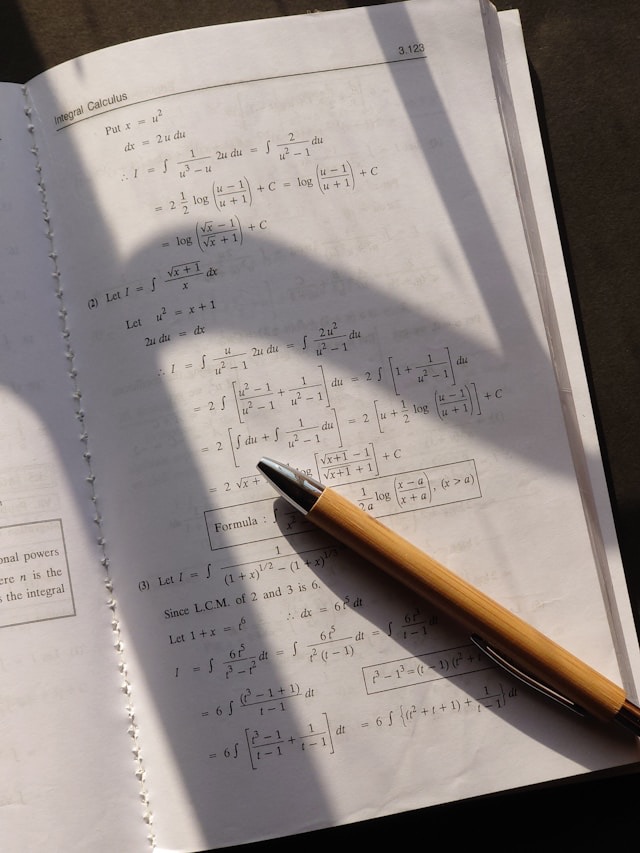 3.123
Integral Calculus
Put x = u²
dx = 2u du
∴ I = ∫ 1/(u³ − u) 2u du = ∫ 2/(u² − 1) du
= 2 1/2 log ((u − 1)/(u + 1)) + C = log ((u − 1)/(u + 1)) + C
= log ((√x − 1)/(√x + 1)) + C
(2) Let I = ∫ √(x + 1)/x dx
Let u² = x + 1
2u du = dx
∴ I = ∫ u/(u² − 1) 2u du = ∫ 2u²/(u² − 1) du
= 2 ∫ [(u² − 1)/(u² − 1) + 1/(u² − 1)] du = 2 ∫ [1 + 1/(u² − 1)] du
= 2 [∫ du + ∫ 1/(u² − 1) du] = 2 [u + 1/2 log ((u − 1)/(u + 1))] + C
= 2 √x + log [(√(x+1) − 1)/(√(x+1) + 1)] + C
Formula : ∫ 1/2a log ((x − a)/(x + a)), (x > a)
(3) Let I = ∫ 1/((1 + x)^1/2 − (1 + x)^1/3
Since L.C.M. of 2 and 3 is 6.
Let 1 + x = t⁶ ∴ dx = 6t⁵ dt
I = ∫ 6t⁵/(t³ − t²) dt = ∫ 6t⁵/(t² (t − 1)) dt = ∫ 6t³/(t − 1) dt
= 6 ∫ (t³ − 1 + 1)/(t − 1) dt
t³ − 1³ = (t − 1) (t² + t
= 6 ∫ [(t³ − 1)/(t − 1) + 1/(t − 1)] dt = 6 ∫ {(t² + t + 1) + 1/(t − 1)} dt
onal powers
ere n is the
s the integral